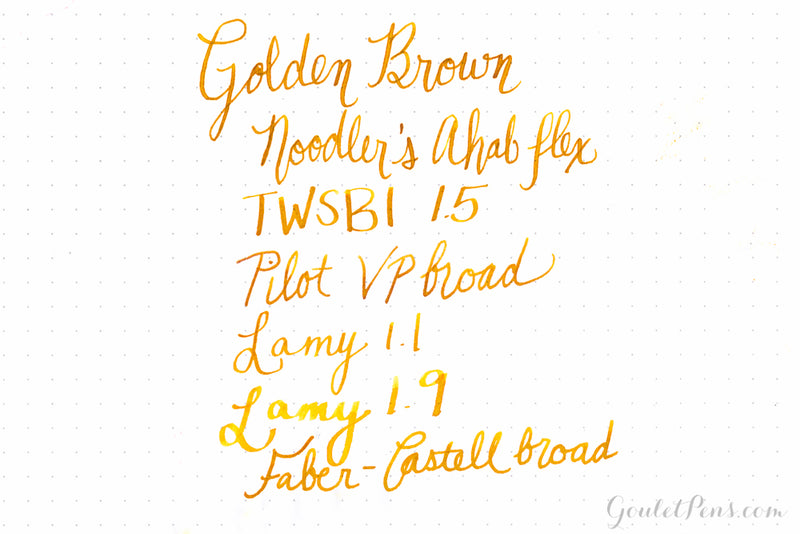 Golden Brown
Noodler's Ahab flex
TWSBI 1.5
Pilot VP broad
Lamy 1.1
Lamy 1.9
Faber-Castell broad
GouletPens.com